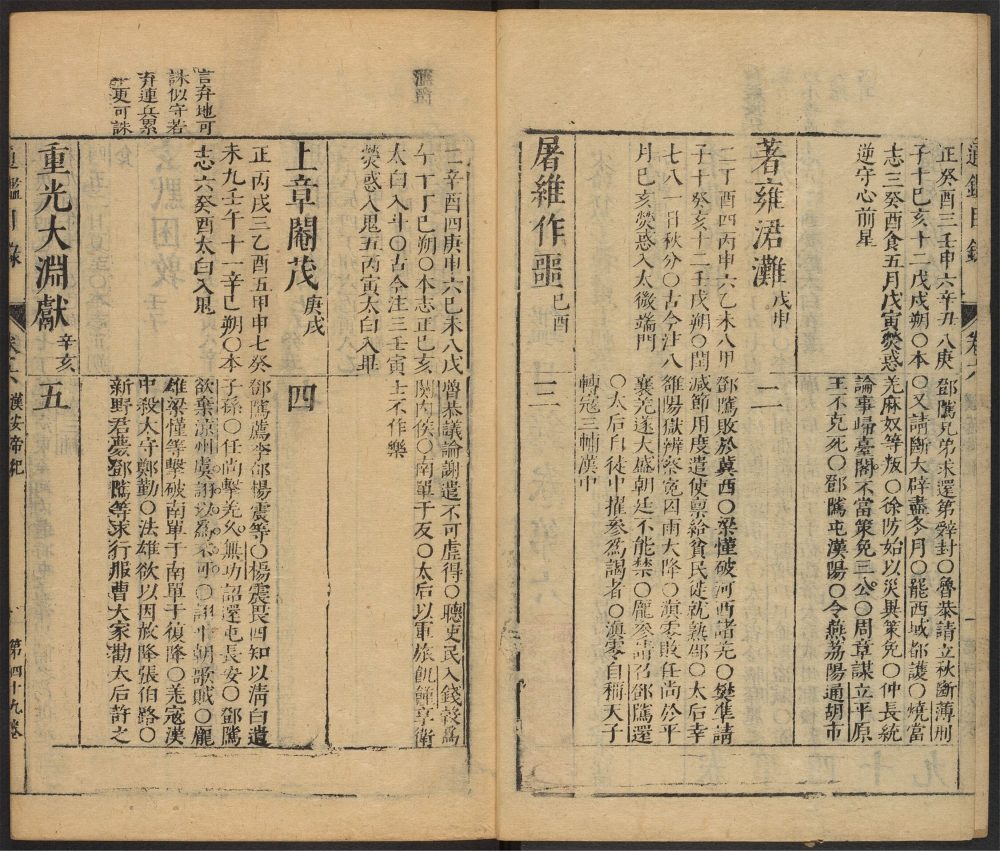 通鑑目錄
卷六
正癸酉三壬申六辛丑八庚
子十己亥十二戊戌朔〇本
志三癸酉食五月戊寅熒惑
逆守心前星
鄧騭兄弟求還第辭封〇魯恭請立秋斷薄刑
〇又請斷大辟盡冬月〇罷西域都護〇燒當
羌麻奴等叛〇徐防始以災異策免〇仲長統
論事歸臺閣不當策免三公〇周章謀立平原
王不克死〇鄧騭屯漢陽〇令燕荔陽通胡市
著雍涒灘 戊申
二
二丁酉四丙申六乙未八甲
子十癸亥十二壬戌朔〇閏
七八一日秋分〇古今注八
月己亥熒惑入太微端門
鄧騭敗於冀西〇梁慬破河西諸羌〇樊準請
減節用度遣使稟給貧民徙就熟郡〇太后幸
雒陽獄辨寃囚雨大降〇滇零敗任尚於平
襄羌遂大盛朝廷不能禁〇龐參請召鄧騭還
〇太后自徒中擢參為謁者〇滇零自稱天子
轉寇三輔漢中
屠維作噩 己酉
三
二辛酉四庚申六己未八戊
午丁丁巳朔〇本志正己亥
太白入斗〇古今注三壬寅
熒惑入鬼五丙寅太白入畢
魯恭議論謝遣不可虛得〇聽吏民入錢穀為
關內侯〇南單于反〇太后以軍旅飢饉享衛
士不作樂
上章閹茂 庚戌
四
正丙戌三乙酉五甲申七癸
未九壬午十一辛巳朔〇本
志六癸酉太白入鬼
鄧騭薦李郃楊震等〇楊震畏四知以清白遺
子孫〇任尚擊羌久無功詔還屯長安〇鄧騭
欲棄涼州虞詡以為不可〇詡平朝歌賊〇龐
雄梁慬等擊破南單于南單于復降〇羌寇漢
中殺太守鄭勤〇法雄欲以因赦降張伯路〇
新野君薨鄧騭等求行服曹大家勸太后許之
言弃地可
誅似守若
弃連兵累
更可誅
重光大淵獻 辛亥
五
通鑑目錄
卷六 漢安帝紀
第四十九卷